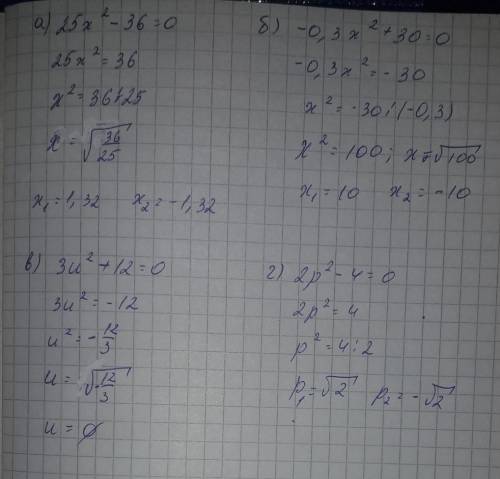 а) 25x² - 36 = 0
25x² = 36
x² = 36 : 25
x = √36/25
x₁ = 1,32 x₂ = -1,32
б) -0,3x² + 30 = 0
-0,3x² = -30
x² = -30 : (-0,3)
x² = 100; x = √100
x₁ = 10 x₂ = -10
в) 3u² + 12 = 0
3u² = -12
u² = -12/3
u = √-12/3
u = ∅
г) 2p² - 4 = 0
2p² = 4
p² = 4 : 2
p₁ = √2 p₂ = -√2